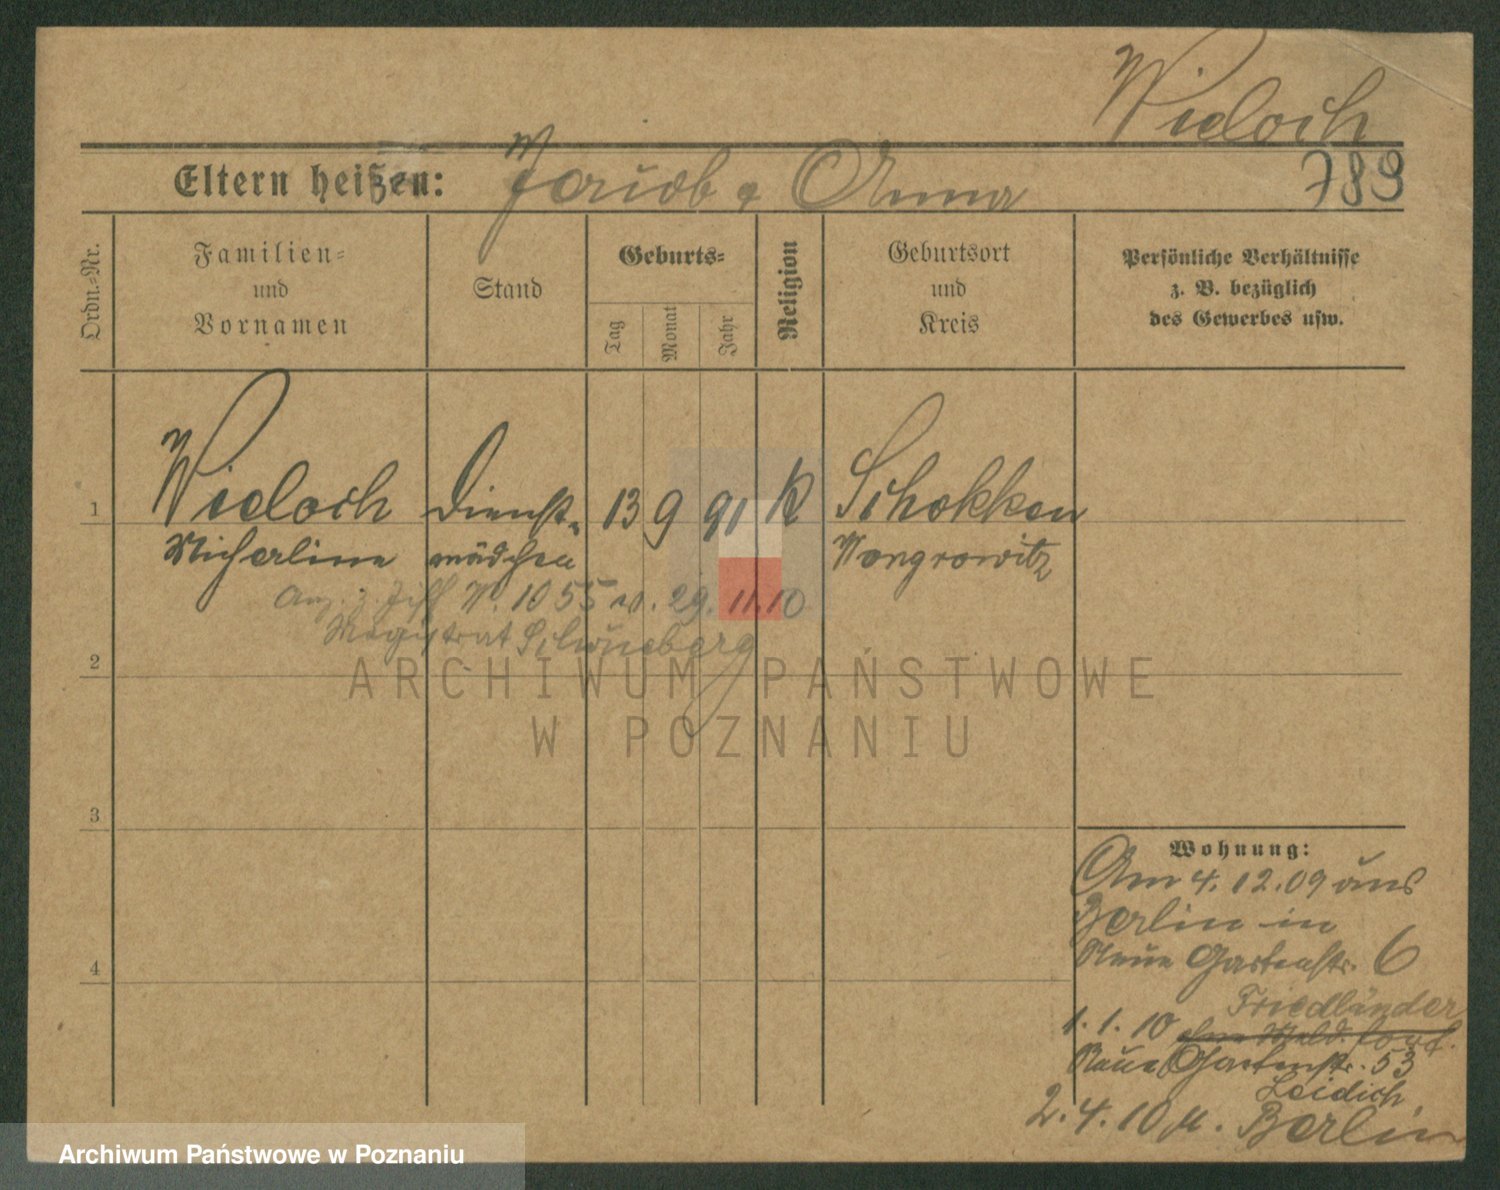 Widoch
Eltern heißen: Jacob & Anna 789
Ordn.-Nr.
Familien-
und
Vornamen
Stand
Geburts-
Tag
Monat
Jahr
Religion
Geburtsort
und
Kreis
Persönliche Verhältnisse
z. B. bezüglich
des Gewerbes usw.
1 Widoch Dienst- 13 9 91 K Schokken
mädchen Wongrowitz
Anz. z. N. 1055 v. 29.11.10
Magistrat Schöneberg
2
3
4
Wohnung:
Am 4.12.09 aus
Berlin in
Neue Gartenstr. 6
Friedländer
1.1.10
Neue Gartenstr. 53
Leidich
2.4.10 n. Berlin
ARCHIWUM PAŃSTWOWE
W POZNANIU
Archiwum Państwowe w Poznaniu